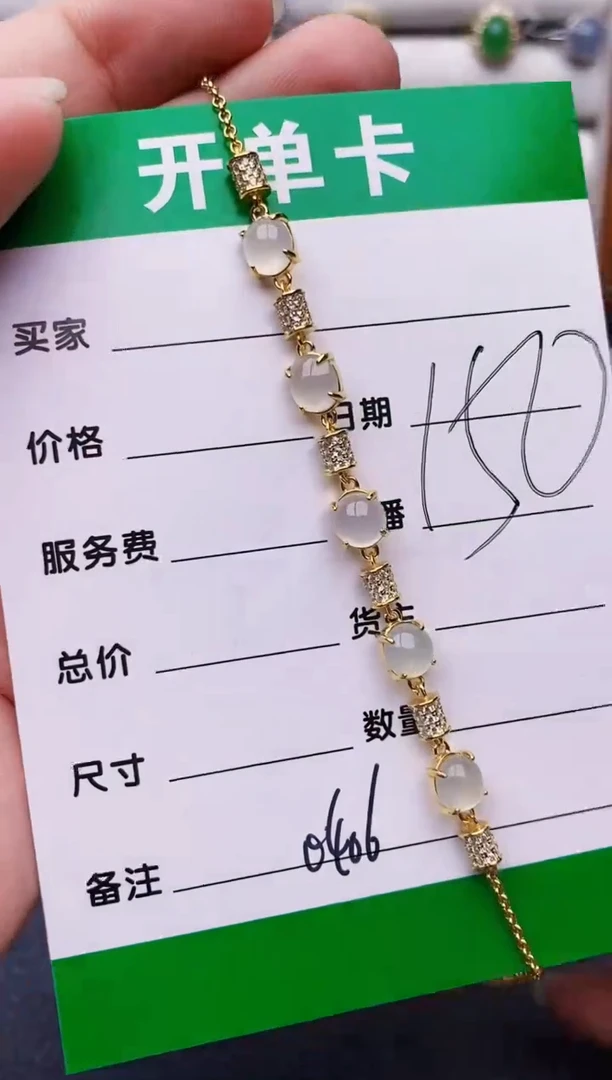 开单卡
买家
价格 日期 150
服务费 播
总价 货主
尺寸 数量
备注 0406